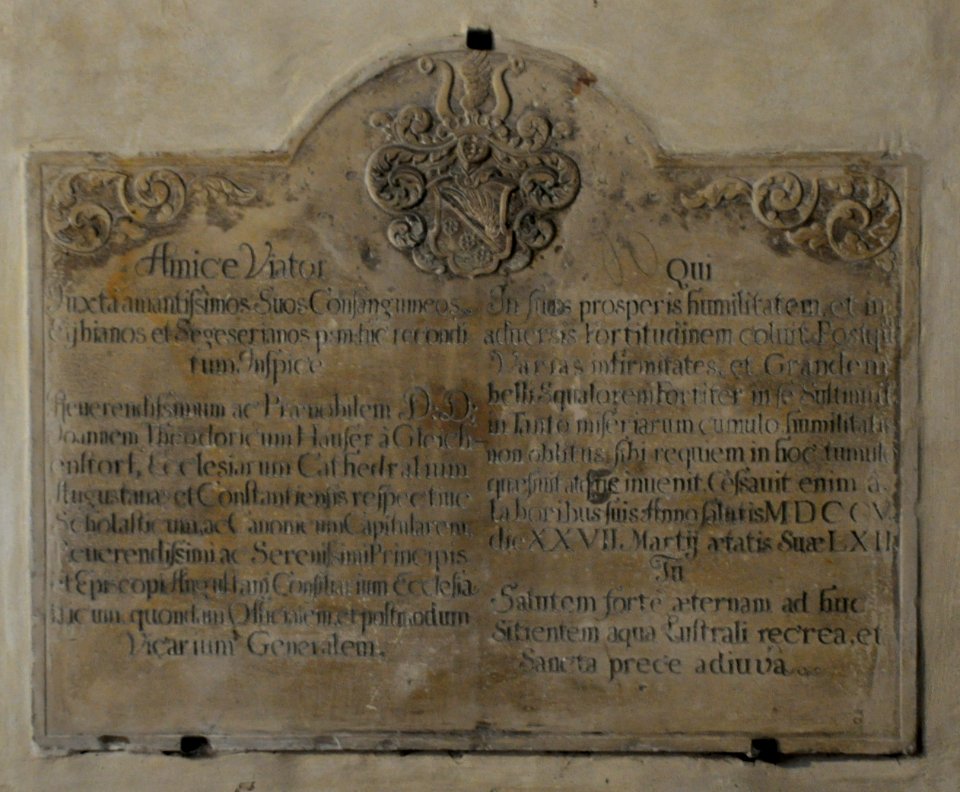 Amice Viator
Iuxta amantissimos Suos Consanguineos
et Segeserianos hic recondi
tum Inspice
Reuerendissimum ac Prænobilem D. D.
Ioannem Theodoricum Hauser à Gleich
enstorf, Ecclesiarum Cathedralium
Augustanæ et Constantiensis respectiue
Scholasticum, ac Canonicum Capitularem,
Reuerendissimi ac Serenissimi Principis
et Episcopi Augustani Consiliarium Ecclesia
sticum, quondam Officialem, et postmodum
Vicarium Generalem.
Qui
In suis prosperis humilitatem, et in
aduersis Fortitudinem coluit. Postqu
Varias infirmitates, et Grandem
belli Squalorem Fortiter in se Sustinuit
in Tanto miseriarum cumulo humilitatis
non oblitus, sibi requiem in hoc tumulo
quæsiuit atque inuenit. Cessauit enim à
laboribus suis Anno salutis MDCCV
die XXVII. Martij ætatis Suæ LXII
Tu
Salutem forte æternam ad huc
Sitientem aqua Lustrali recrea, et
Sancta prece adiuva